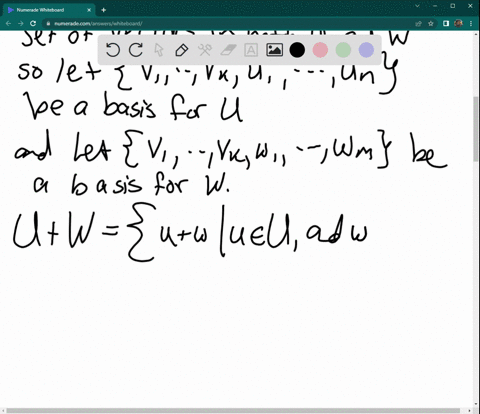 Numerade Whiteboard
numerade.com/answers/whiteboard/
set of vectors in both U and W
so let {v₁, .., vₖ, u₁, ..., uₙ}
be a basis for U
and let {v₁, .., vₖ, w₁, .., wₘ} be
a basis for W.
U+W = {u+w | u∈U, ad w